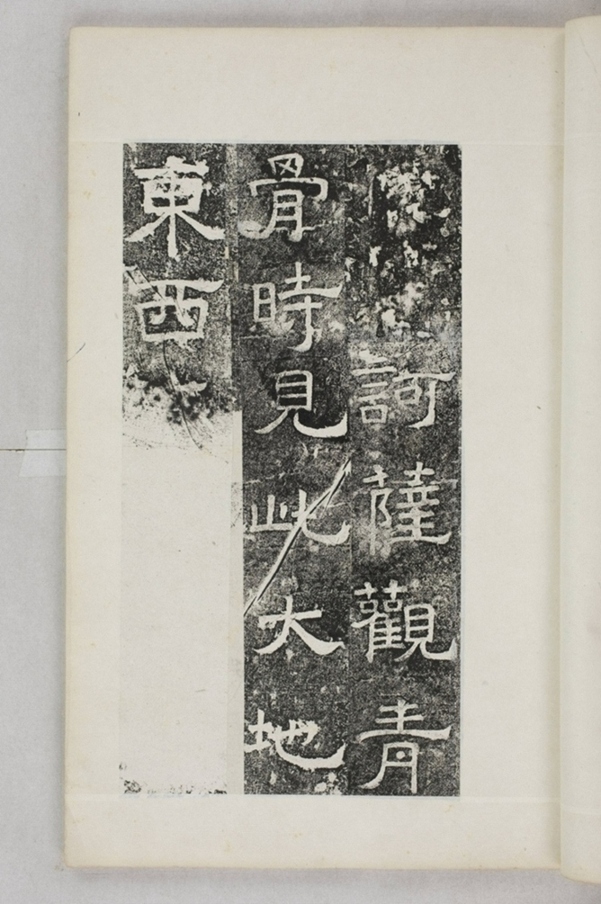 訶薩觀青
骨時見此大地
東西